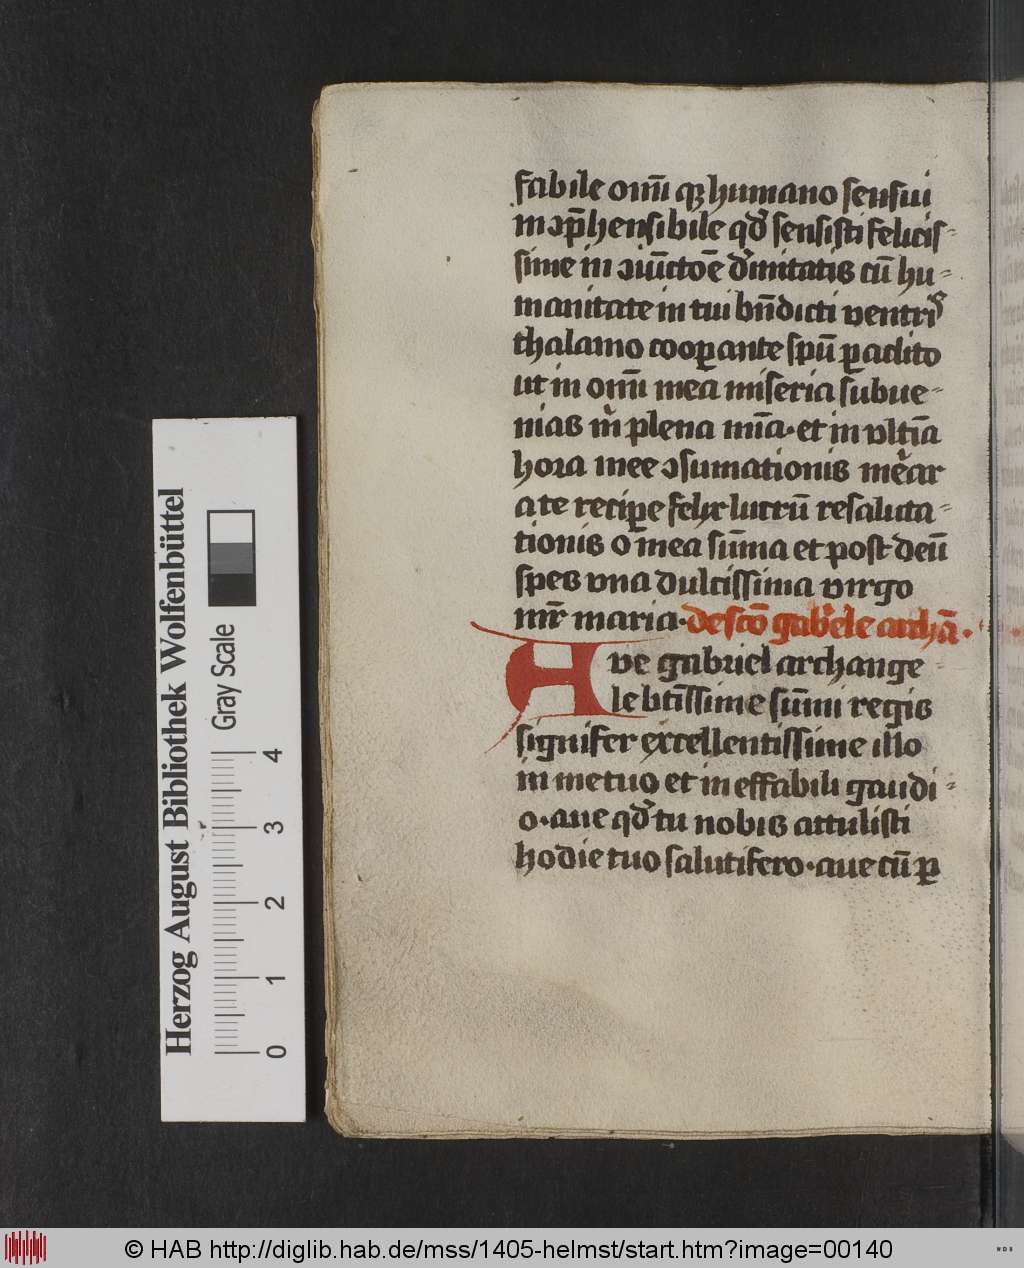 fabile om̄i qꝫ humano sensui
inↄp̄hensibile qd̓ sensisti felicis-
sime in ↄiūctōe d̓initatis cū hu-
manitate in tui bn̄dicti ventris
thalamo cooꝑante spū ꝑadito
ut in om̄i mea miseria subue-
nias m̓ plena mīa· et in vltīa
hora mee ↄsumationis
a te recipe lucrū resaluta-
tionis o mea sūma et post deū
spes vna dulcissima virgo
maria· de scō gab̓ele archā·
Ave gabriel archange
le btīssime sūmi regis
signifer excellentissime illo
in metuo et ineffabili gaudi-
o· aue qd̓ tu nobis attulisti
hodie tuo salutifero· aue cū ꝑ
Herzog August Bibliothek Wolfenbüttel
Gray Scale
0 1 2 3 4
© HAB http://diglib.hab.de/mss/1405-helmst/start.htm?image=00140